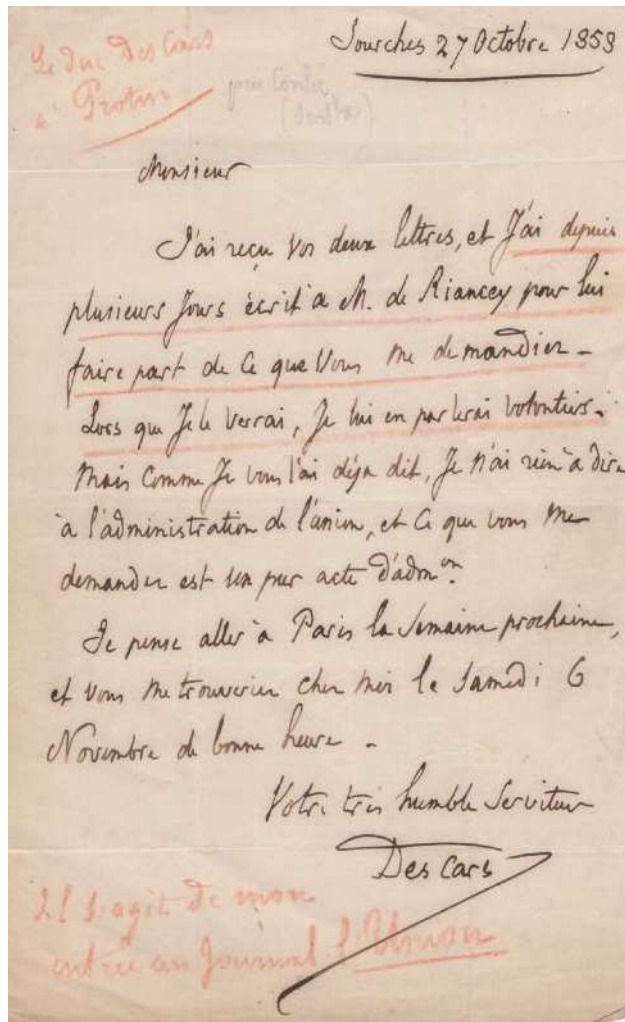 Sourches 27 Octobre 1858
Le Duc Des Cars
à Protin
Monsieur
J'ai reçu vos deux lettres, et J'ai depuis
plusieurs Jours écrit à M. de Riancey pour lui
faire part de Ce que Vous me demandiez -
Lors que Je le Verrai, Je lui en parlerai volontiers.
Mais Comme Je vous l'ai déja dit, Je n'ai rien à dire
à l'administration de l'union, et Ce que vous me
demandez est un pur acte d'adm.on
Je pense aller à Paris la Semaine prochaine,
et vous me trouveriez chez moi le Samedi 6
Novembre de bonne heure -
Votre très humble Serviteur
Des Cars
Il s'agit de mon
entrée au Journal l'Union